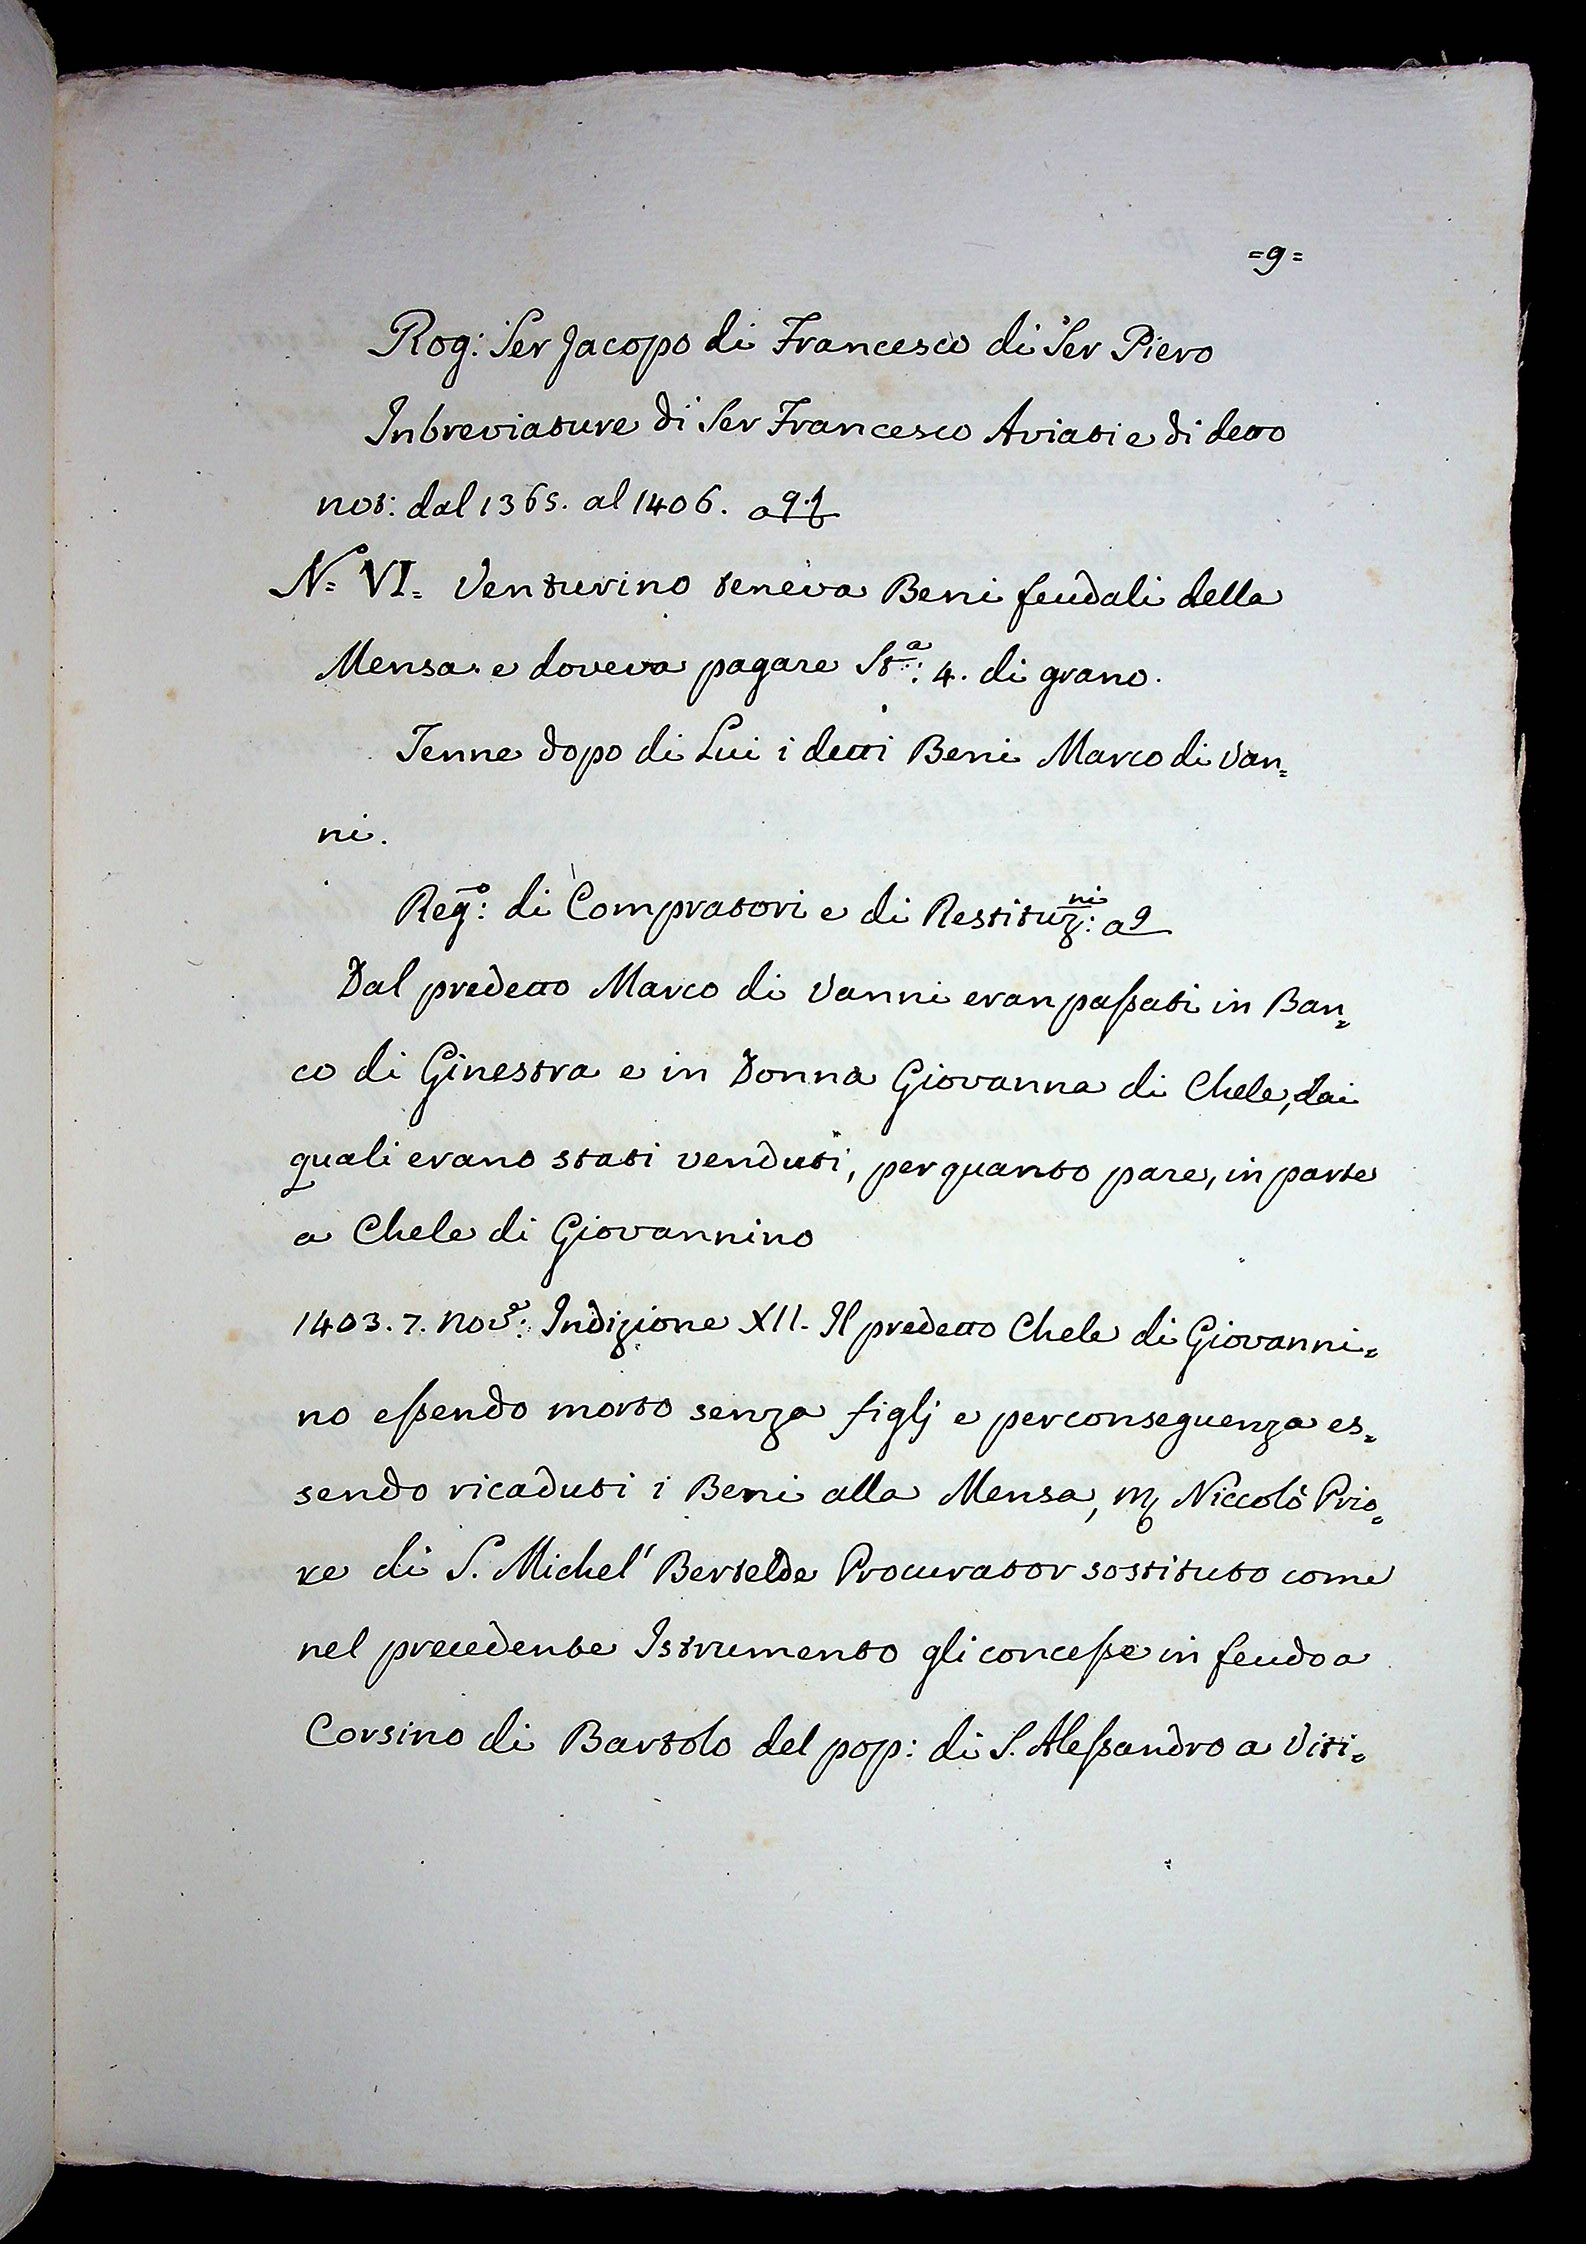 =9=
Rog: Ser Jacopo di Francesco di Ser Piero
Inbreviature di Ser Francesco Aviati e di detto
not: dal 1365. al 1406. a 9.
N.o VI. Venturino teneva Beni feudali della
Mensa e doveva pagare Sta: 4. di grano.
Tenne dopo di Lui i detti Beni Marco di Van=
ni.
Rego: di Compratori e di Restituzni: a 9
Dal predetto Marco di Vanni eran paſsati in Ban=
co di Ginestra e in Donna Giovanna di Chele, dai
quali erano stati venduti, per quanto pare, in parte
a Chele di Giovannino
1403. 7. Nove: Indizione XII. Il predetto Chele di Giovanni=
no eſsendo morto senza figlj e perconseguenza es=
sendo ricaduti i Beni alla Mensa, Niccolò Prio=
re di S. Michel' Bertelde Procurator sostituto come
nel precedente Istrumento gli conceſse in feudo a
Corsino di Bartolo del pop: di S. Aleſsandro a Viti=